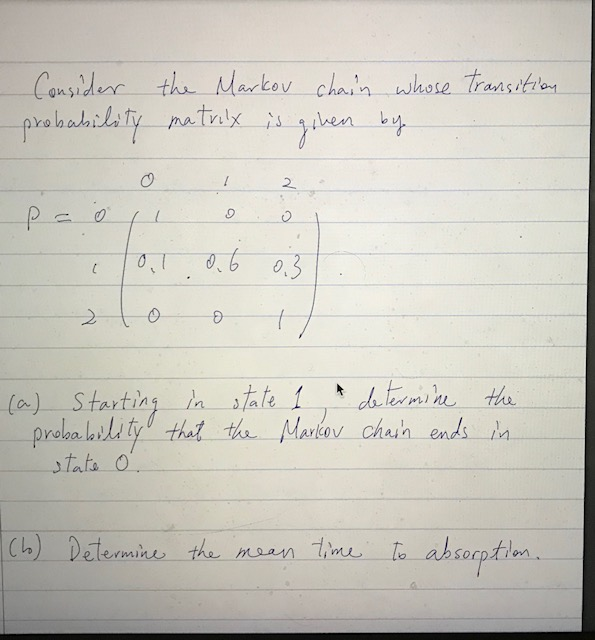 Consider the Markov chain whose transition
probability matrix is given by
0 1 2
P = 0 1 0 0
1 0.1 0.6 0.3
2 0 0 1
(a) Starting in state 1, determine the
probability that the Markov chain ends in
state 0.
(b) Determine the mean time to absorption.